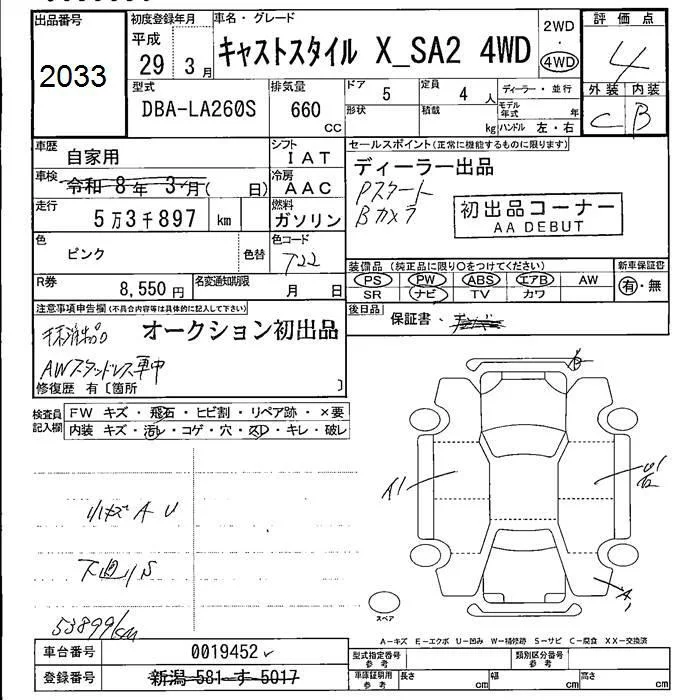 出品番号
2033
初度登録年月
平成
29 3月
車名・グレード
キャストスタイル X_SA2 4WD
2WD
4WD
評価点
4
外装 内装
C B
型式
DBA-LA260S
排気量
660
cc
ドア
5
定員
4 人
形状
積載
kg
ディーラー・並行
モデル年式 年
ハンドル 左・右
車歴
自家用
シフト
IAT
車検
令和 8年 3月( 日)
冷房
AAC
走行
5万3千897 km
燃料
ガソリン
色
ピンク
色替
色コード
T22
R券
8,550円
名変通知期限
月 日
セールスポイント(正常に機能するものに限ります)
ディーラー出品
Pスタート
Bカメラ
初出品コーナー
AA DEBUT
装備品(純正品に限り○をつけてください)
PS PW ABS エアB AW
SR ナビ TV カワ
新車保証書
有・無
後日品
保証書・
注意事項申告欄(不具合内容等は具体的に記入して下さい)
オークション初出品
AWスタッドレス車中
修復歴 有〔箇所 〕
検査員記入欄
FW キズ・飛石・ヒビ割・リペア跡・×要
内装 キズ・汚レ・コゲ・穴・スレ・キレ・破レ
小キズ A U
下廻りS
53899km
A1
A1
スペア
A-キズ E-エクボ U-凹み W-補修跡 S-サビ C-腐食 XX-交換済
車台番号
0019452
登録番号
新潟 581 す 5017
型式指定番号
参考
類別区分番号
参考
車庫証明用
参考
長さ cm
幅 cm
高さ cm